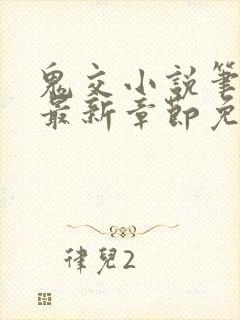 鬼文小說筆
最新章節免
律兒2